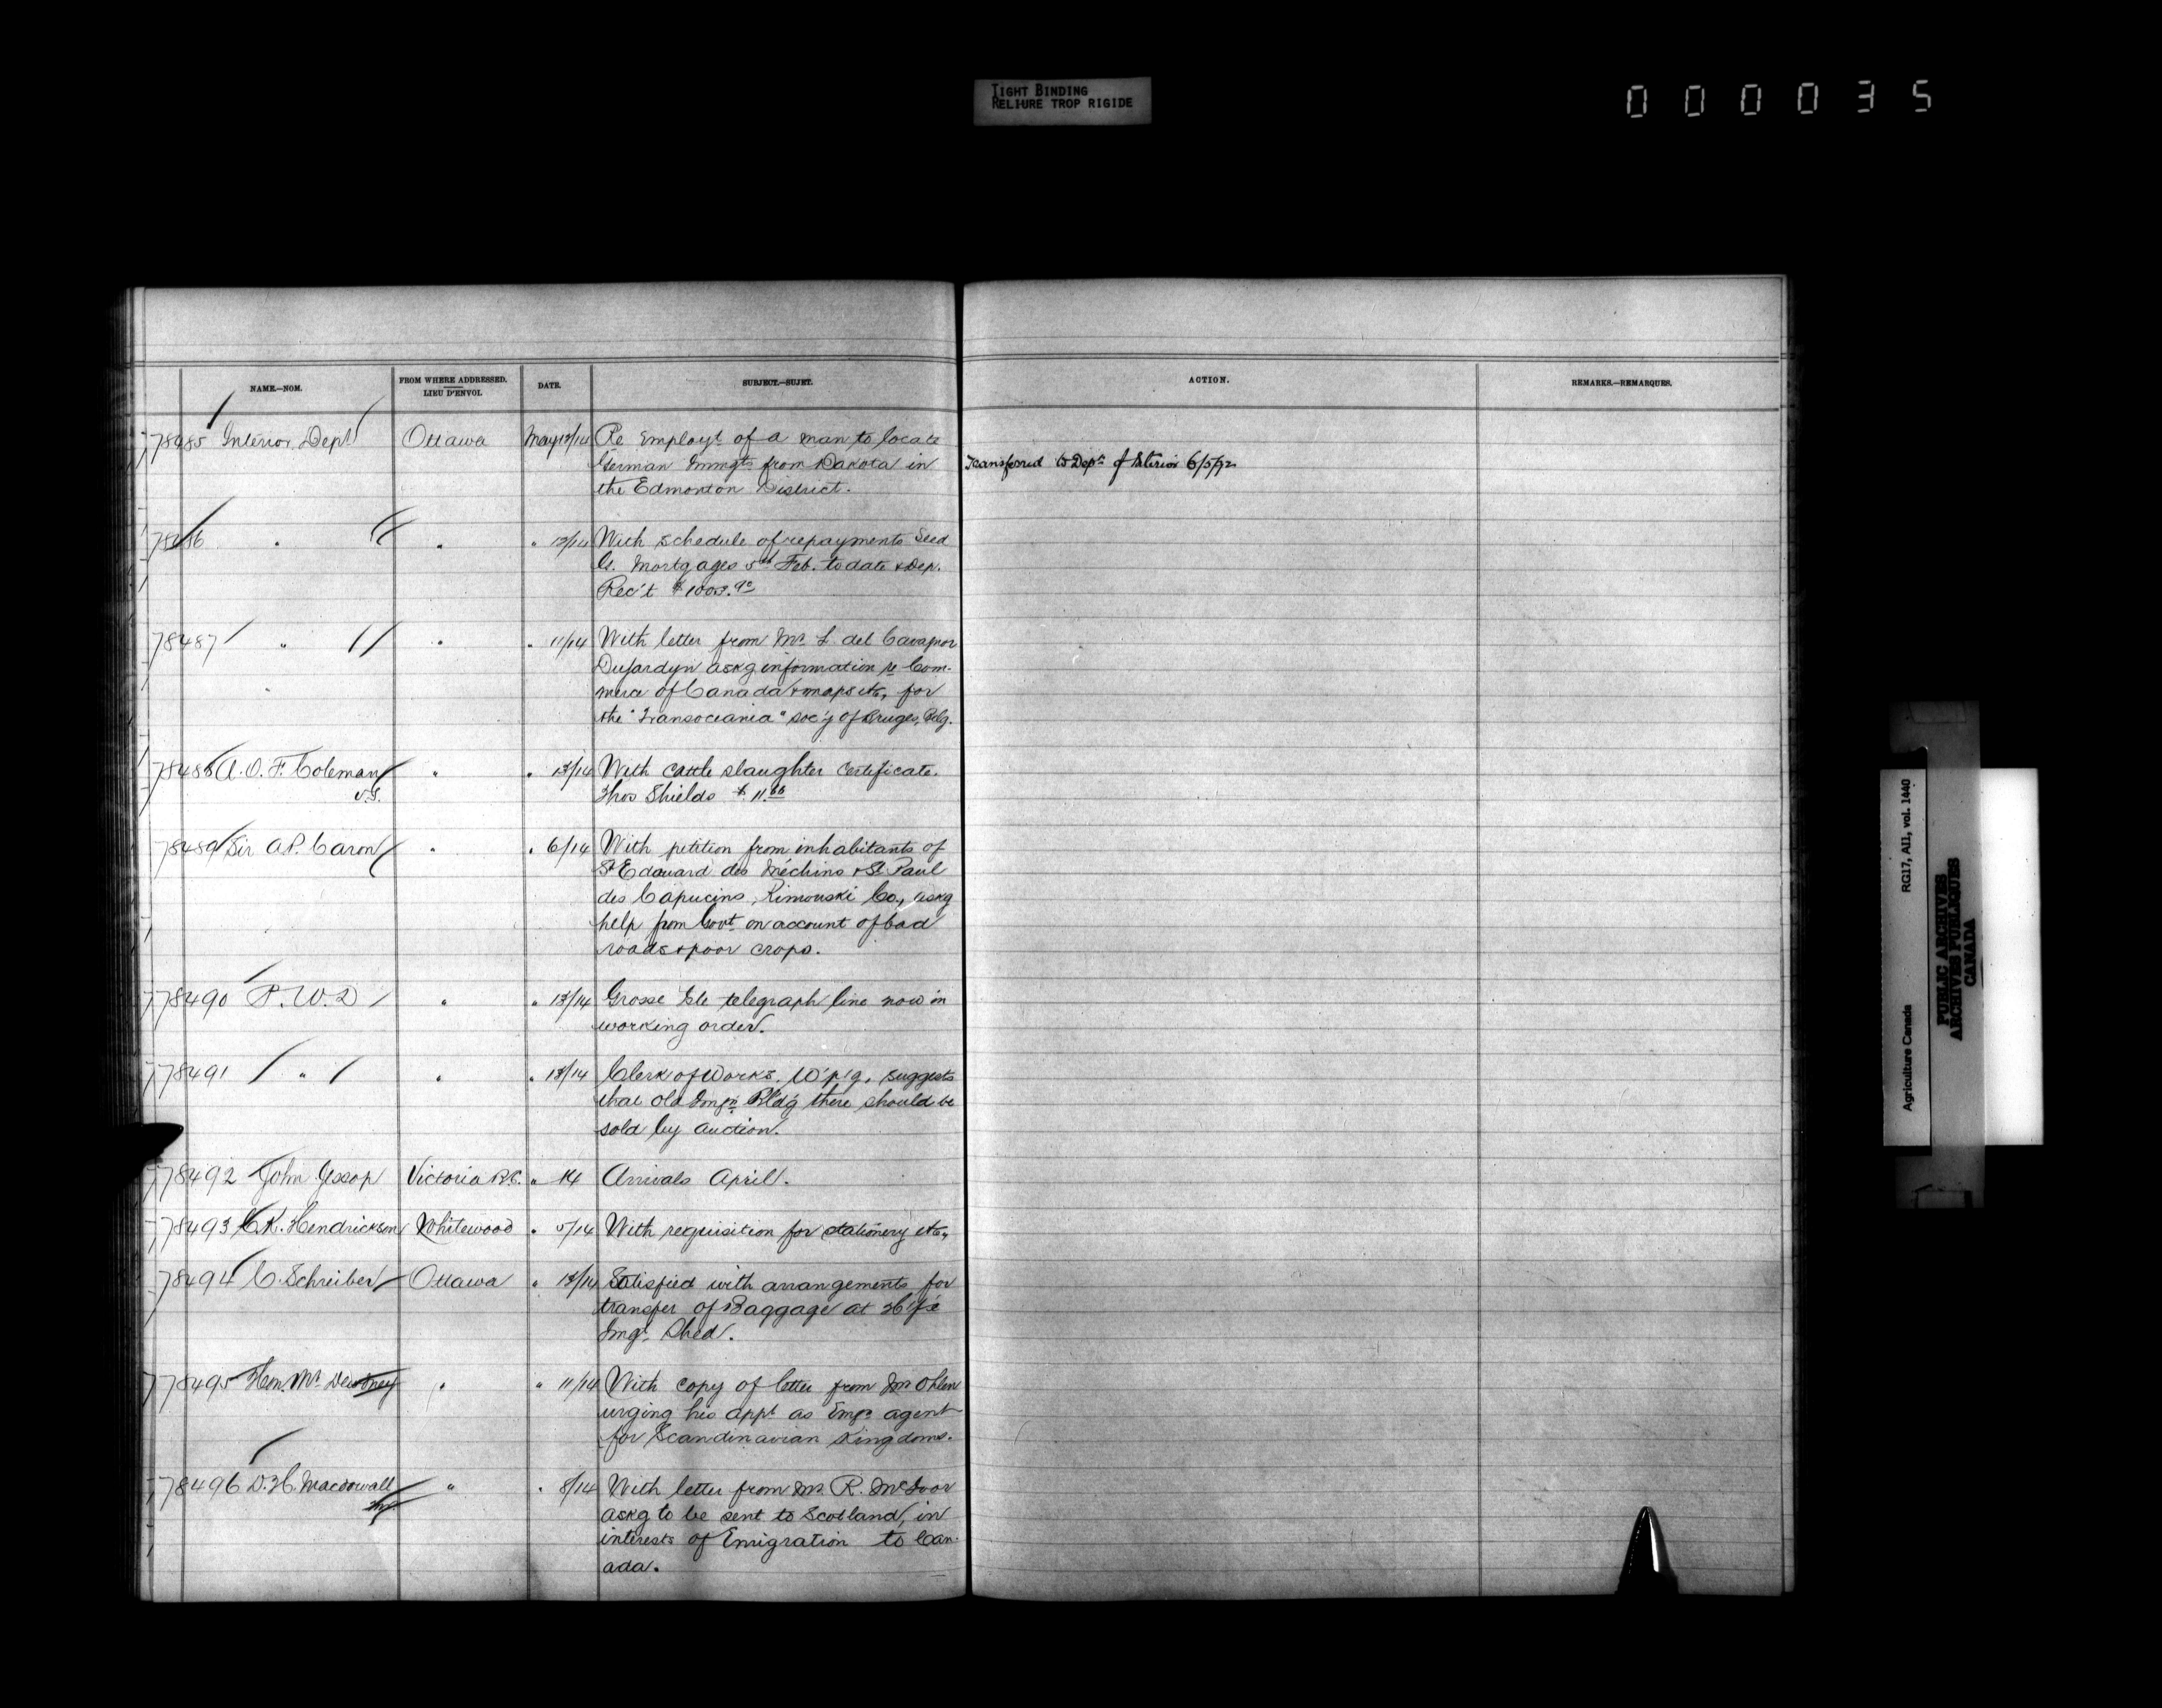 TIGHT BINDING
RELIURE TROP RIGIDE
000035
NAME.—NOM.
FROM WHERE ADDRESSED.
LIEU D'ENVOI.
DATE.
SUBJECT.—SUJET.
ACTION.
REMARKS.—REMARQUES.
78485 Interior Dept Ottawa May 13/14 Re Employt of a man to locate
German Immgts from Dakota in
the Edmonton District.
Transferred to Dept of Interior 6/5/92
78486 " " " 13/14 With schedule of repayments Seed
Gr. Mortgages 5th Feb. to date & Dep.
Rec't
78487 " " " 11/14 With letter from Mr. L. del
Dujardyn askg information re Com-
merce of Canada & maps etc, for
the "Transoceania" soc'y of Bruges, Belg.
78488 A. O. F. Coleman " " 13/14 With cattle slaughter certificate.
V.S. Thos Shields $
78489 Sir A.P. Caron " " 6/14 With petition from inhabitants of
St Edouard des Méchins & St. Paul
des Capucins, Rimouski Co., askg
help from Govt on account of bad
roads & poor crops.
78490 P. W. D " " 13/14 Grosse Isle telegraph line now in
working order.
78491 " " " 13/14 Clerk of Works, W'p'g, suggests
that old Imgn Bld'g there should be
sold by auction.
78492 John Jessop Victoria B.C. " 14 Arrivals April.
78493 C.K. Hendrickson Whitewood " 5/14 With requisition for stationery etc,
78494 C. Schreiber Ottawa " 13/14 Satisfied with arrangements for
transfer of Baggage at H'f'x
Imgn Shed.
78495 Hon. Mr. Dewdney " " 11/14 With copy of letter from Mr Ohlen
urging his appt as Emgn agent
for Scandinavian Kingdoms.
78496 D. H. Macdowall " " 8/14 With letter from Mr. R. McIvor
askg to be sent to Scotland, in
interests of Emigration to Can-
ada.
Agriculture Canada RG17, AII, vol. 1440
PUBLIC ARCHIVES
ARCHIVES PUBLIQUES
CANADA